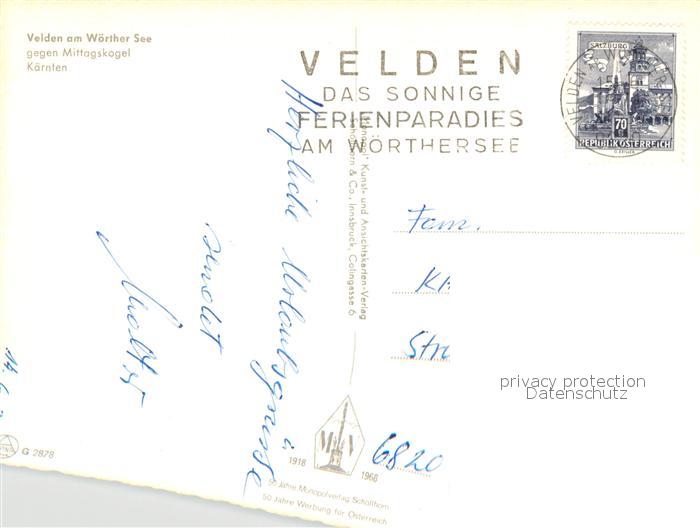 Velden am Wörther See
gegen Mittagskogel
Kärnten
VELDEN
DAS SONNIGE
FERIENPARADIES
AM WÖRTHERSEE
SALZBURG
70
REPUBLIK ÖSTERREICH
Herzliche Urlaubsgrüsse
sendet
Kunst- und Ansichtskarten-Verlag
& Co., Innsbruck, Colingasse 6
Fam.
Kl
Str
privacy protection
Datenschutz
6820
1918
1968
50 Jahre Monopolverlag Schöllhorn
50 Jahre Werbung für Österreich
G 2878